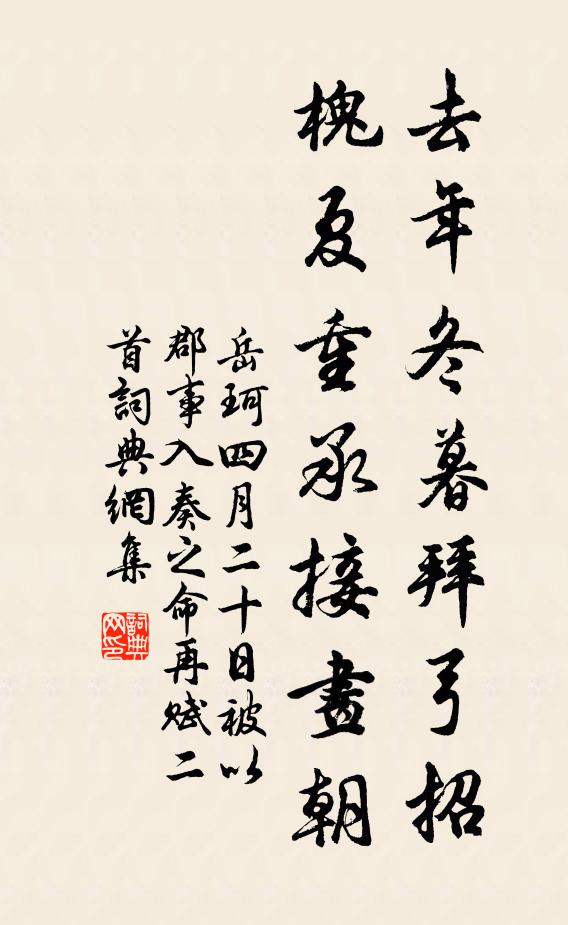 去年冬暮拜弓招
槐夏重承接晝朝
岳珂四月二十日被以
郡事入奏之命再賦二
首詞典網集
詞典
网印